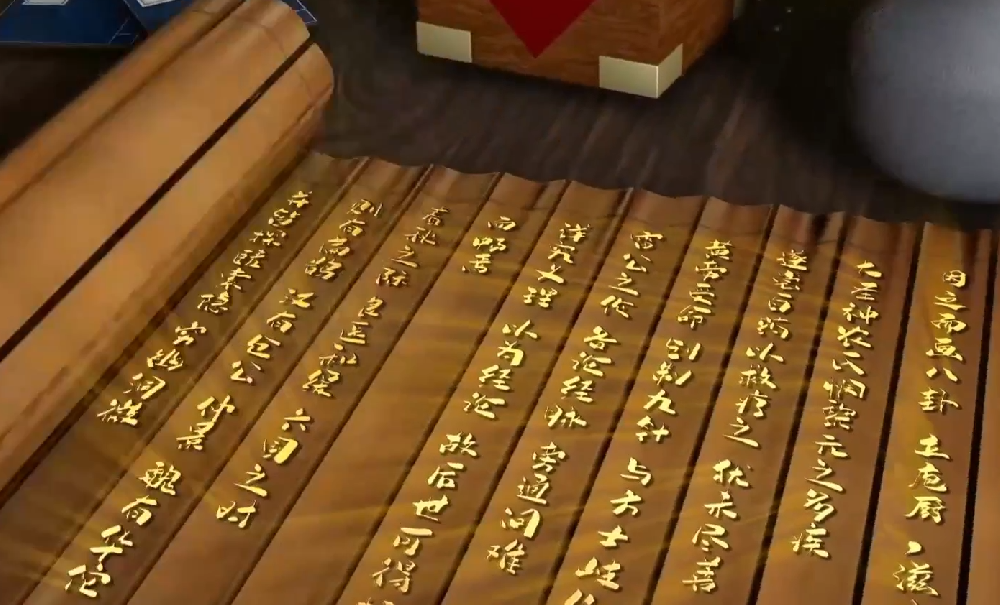 因之而画八卦 立庖厨 滋
大圣神农氏悯黎元之多疾
遂尝百药以救疗之 犹未尽善
黄帝受命 创制九针 与方士岐
雷公之伦 备论经脉 旁通问难
详究义理 以为经论 故后世可得
而畅焉
春秋之际 良医和缓 六国之时
则有扁鹊 汉有仓公 仲景 魏有华佗
并皆探赜索隐 穷幽洞微